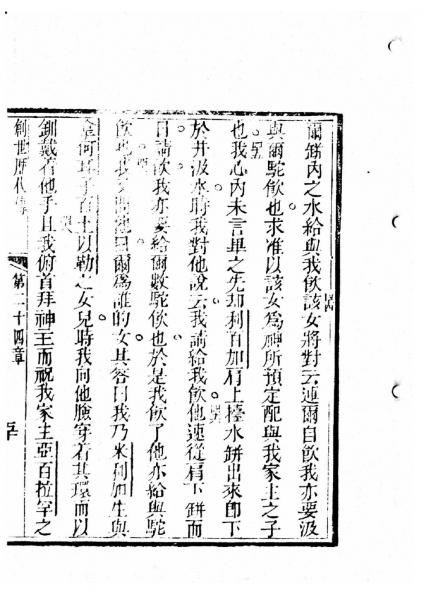 爾缾內之水給與我飲該女將對云連爾自飲我亦要汲
與爾駝飲也求准以該女爲神所預定配與我家主之子
也我心內未言畢之先却利百加肩上擡水缾出來卽下
於井汲水時我對他說云我請給我飲他速從肩下缾而
曰請飲我亦要給爾數駝飲也於是我飲了他亦給與駝
飲也我又問他曰爾爲誰的女其答曰我乃米利加生與
拿何耳子百土以勒之女兒時我向他臉穿着其環而以
釧戴着他手且我俯首拜神主而祝我家主亞百拉罕之
創世歷代傳 第二十四章